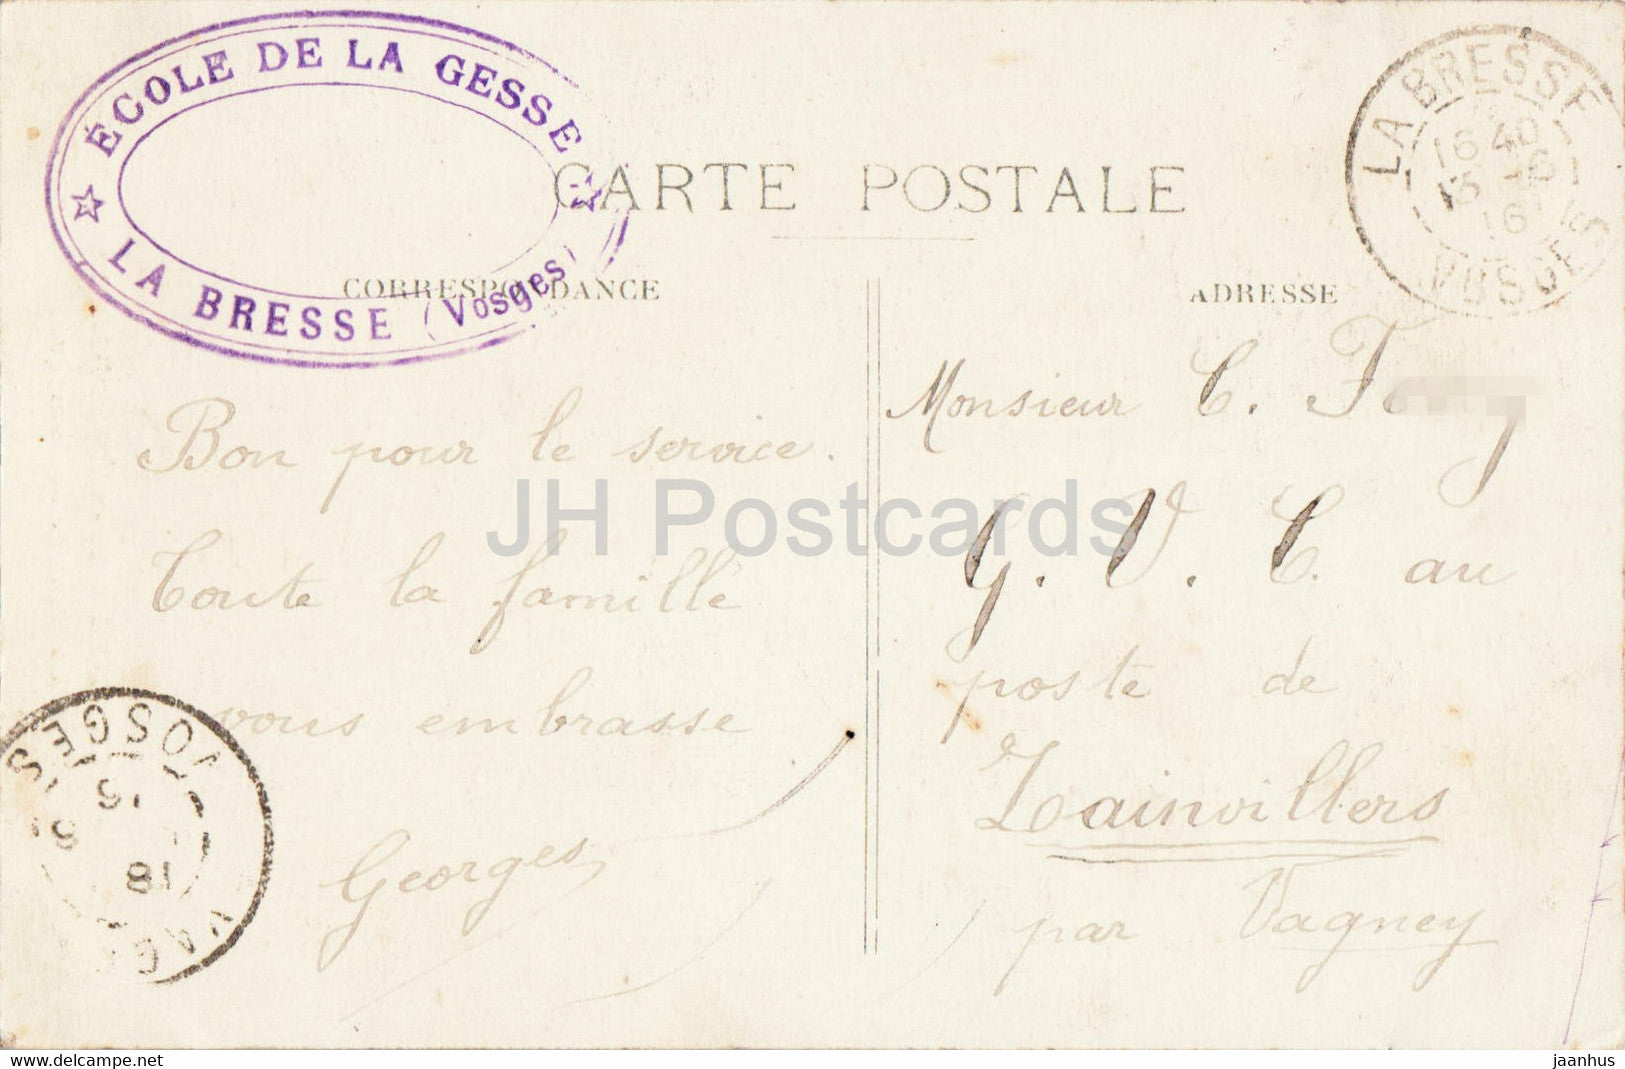 ÉCOLE DE LA GESSE
LA BRESSE (Vosges)
CARTE POSTALE
LA BRESSE
16 40
15 -6
16
VOSGES
CORRESPONDANCE
ADRESSE
Bon pour le service.
Toute la famille
vous embrasse
Georges
Monsieur C.
G. V. C. au
poste de
Zainvillers
par Vagney
VOSGES
JH Postcards
Delcampe.net
jaanhus